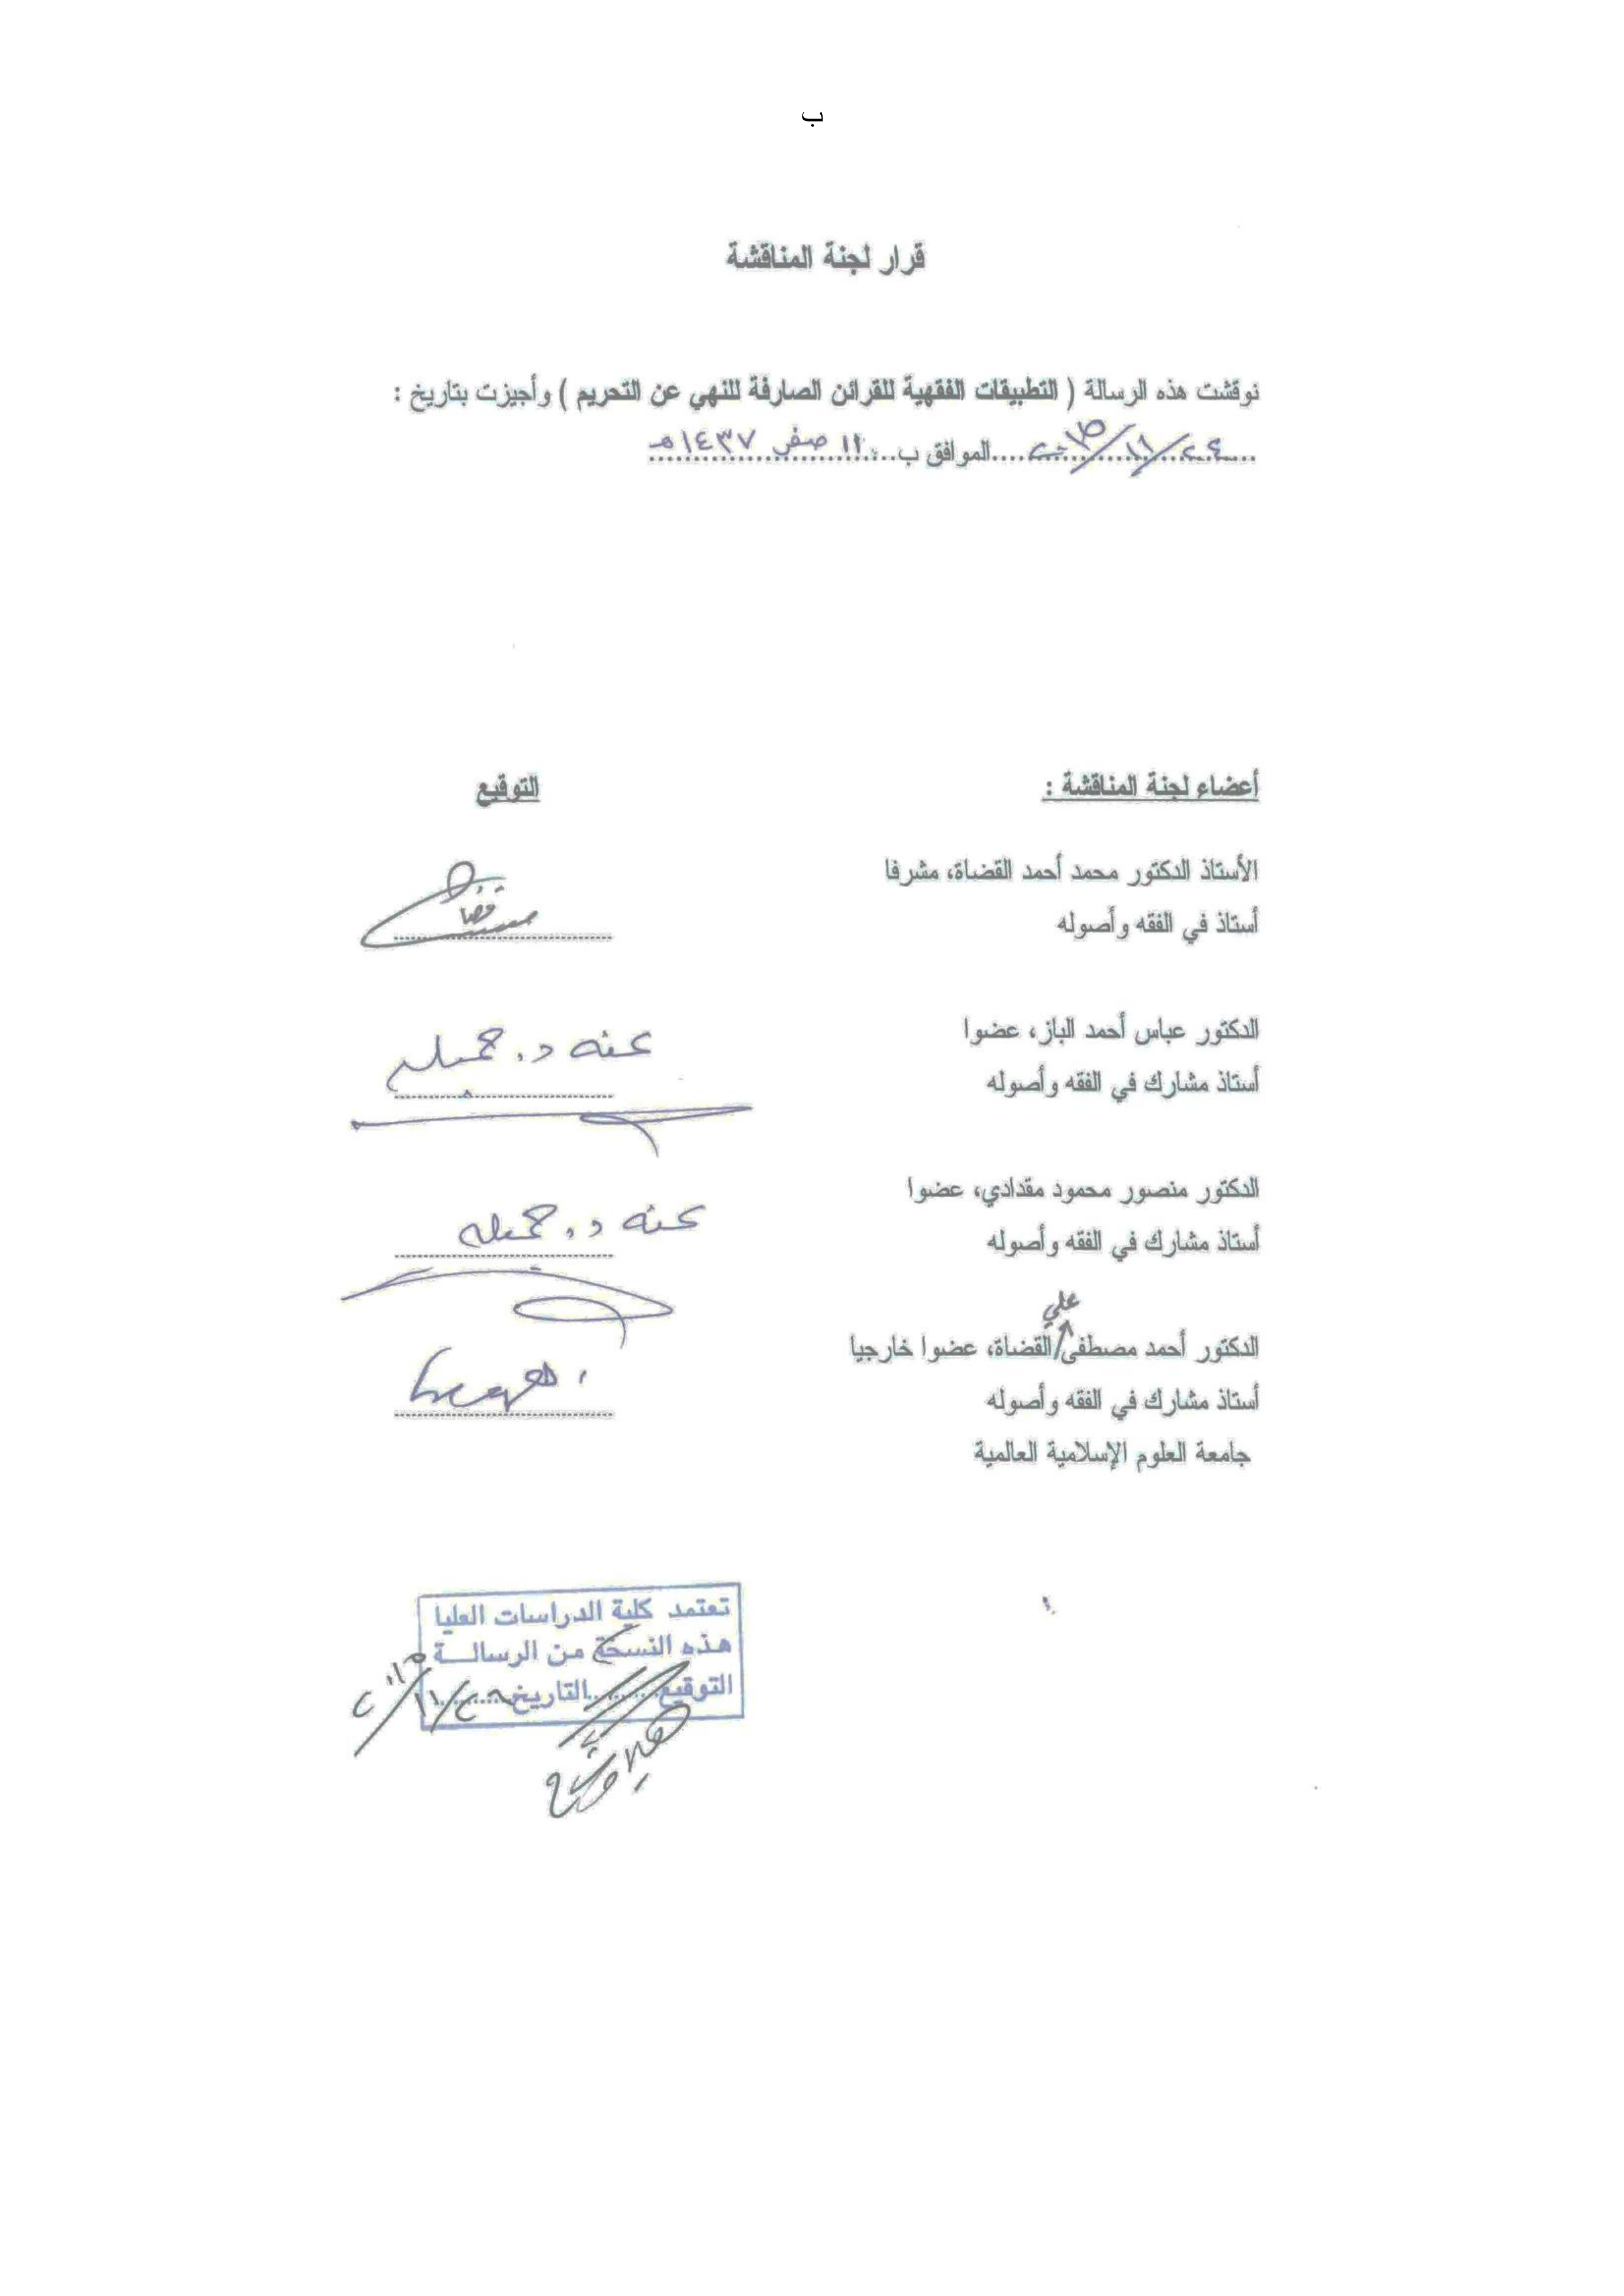 ب
قرار لجنة المناقشة
نوقشت هذه الرسالة ( التطبيقات الفقهية للقرائن الصارفة للنهي عن التحريم ) وأجيزت بتاريخ :
٢٤/١١/٢٠١٥ الموافق ب ١٢ صفر ١٤٣٧هـ
أعضاء لجنة المناقشة : التوقيع
الأستاذ الدكتور محمد أحمد القضاة، مشرفا
أستاذ في الفقه وأصوله
الدكتور عباس أحمد الباز، عضوا
عنه د. جميله
أستاذ مشارك في الفقه وأصوله
الدكتور منصور محمود مقدادي، عضوا
عنه د. جميله
أستاذ مشارك في الفقه وأصوله
علي
الدكتور أحمد مصطفى/القضاة، عضوا خارجيا
أستاذ مشارك في الفقه وأصوله
جامعة العلوم الإسلامية العالمية
تعتمد كلية الدراسات العليا
هذه النسخة من الرسالــة
التوقيع........التاريخ